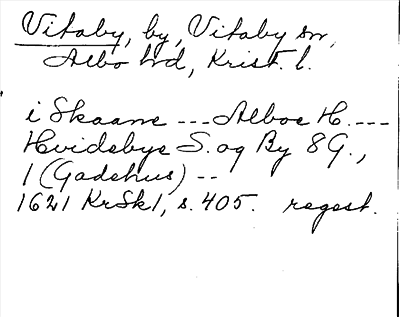 Vitaby, by, Vitaby sn,
Albo hd, Krist. l.
i Skaane --- Alboe H. ---
Hvidebye S. og By 8 G.,
1 (Gadehus) --
1621 KrSk1, s. 405. regest.